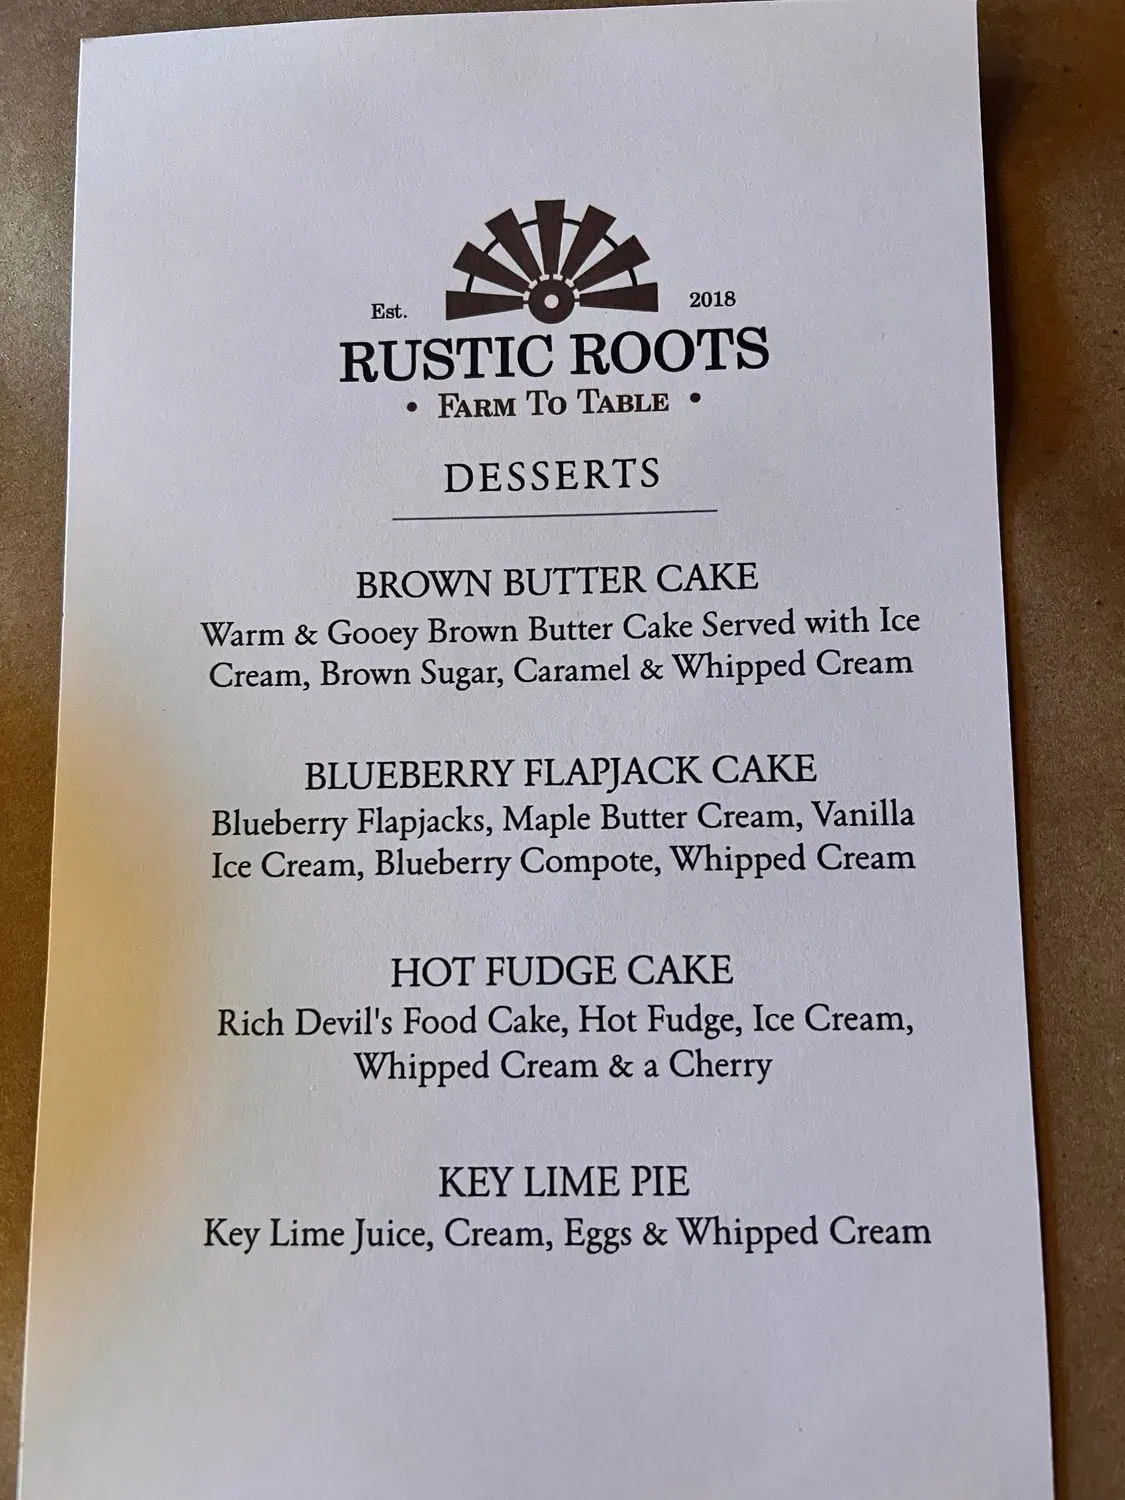 Est. 2018
RUSTIC ROOTS
• FARM TO TABLE •
DESSERTS
BROWN BUTTER CAKE
Warm & Gooey Brown Butter Cake Served with Ice
Cream, Brown Sugar, Caramel & Whipped Cream
BLUEBERRY FLAPJACK CAKE
Blueberry Flapjacks, Maple Butter Cream, Vanilla
Ice Cream, Blueberry Compote, Whipped Cream
HOT FUDGE CAKE
Rich Devil's Food Cake, Hot Fudge, Ice Cream,
Whipped Cream & a Cherry
KEY LIME PIE
Key Lime Juice, Cream, Eggs & Whipped Cream